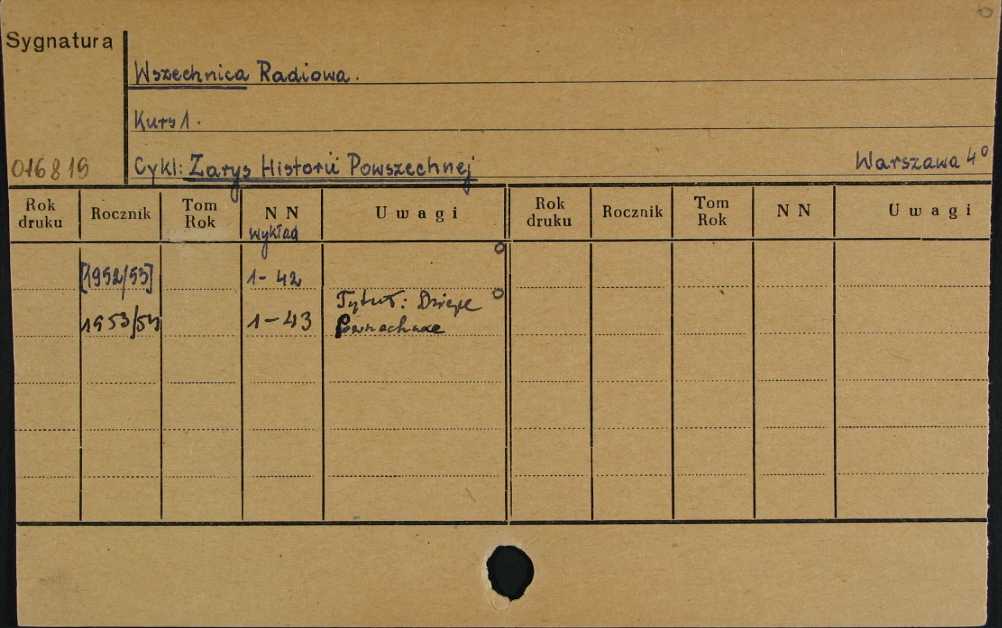 Sygnatura
Wszechnica Radiowa.
Kurs 1.
016819 Cykl: Zarys Historii Powszechnej Warszawa 4°
Rok druku Rocznik Tom Rok N N Uwagi Rok druku Rocznik Tom Rok N N Uwagi
wykład
[1952/53] 1-42
Tytuł: Dzieje
1953/54 1-43 Powszechne